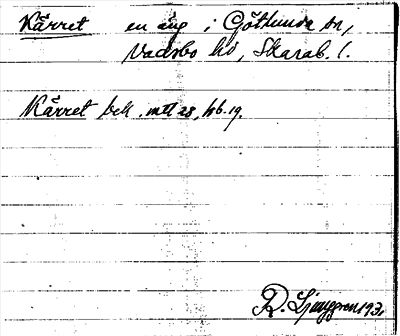 Kärret en äng i Götlunda sn,
Vadsbo hd, Skarab. l.
Kärret bek. mtl 28, hb. 19.
R. Ljunggren 193.